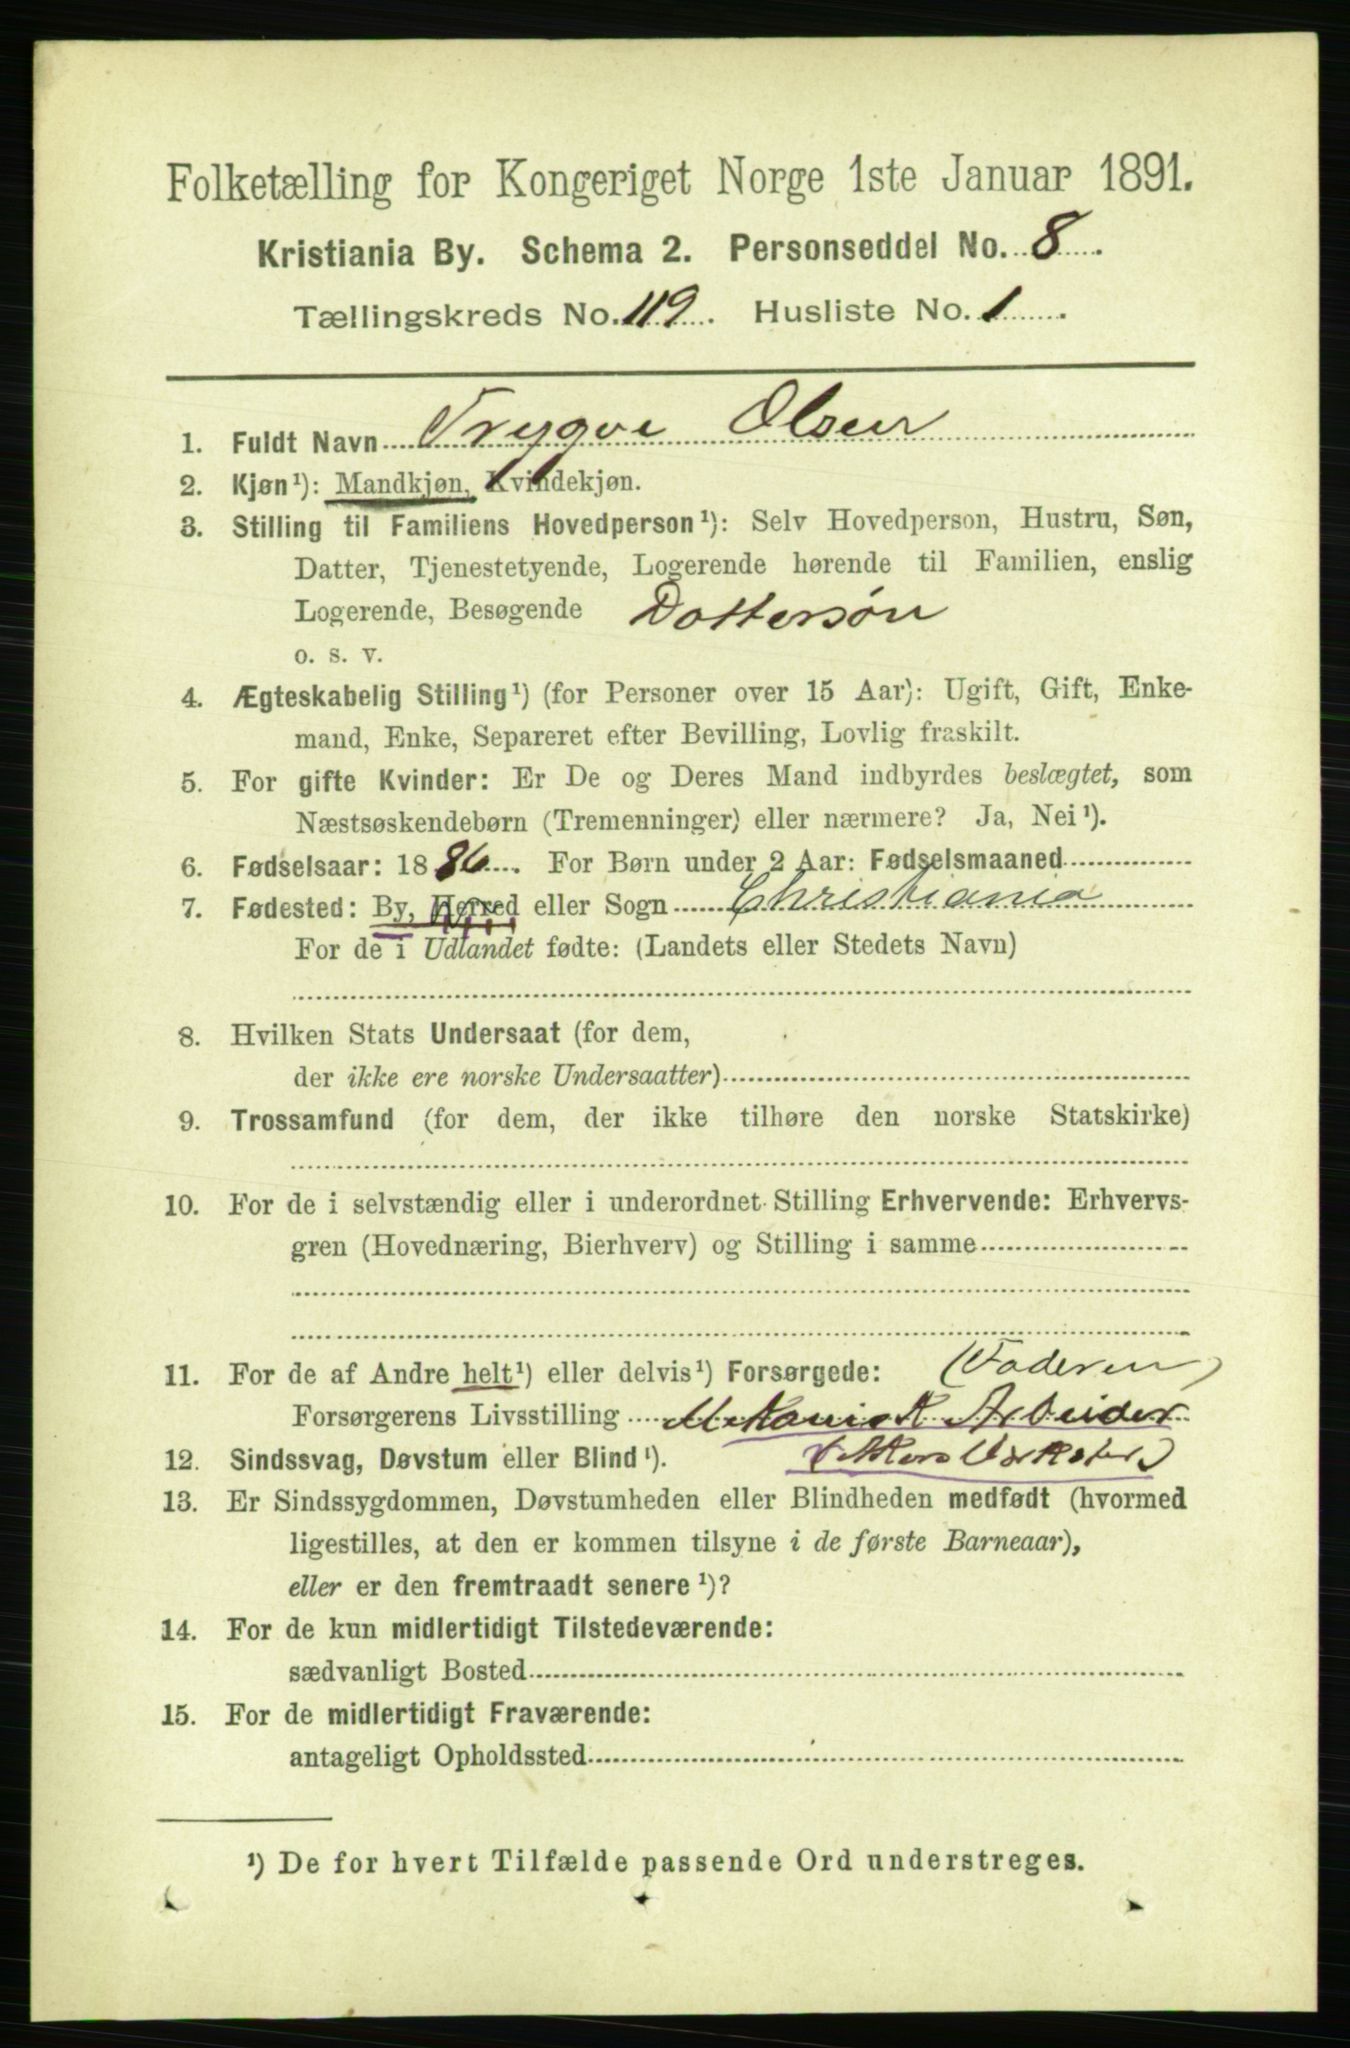 Folketælling for Kongeriget Norge 1ste Januar 1891.
Kristiania By. Schema 2. Personseddel No. 8.
Tællingskreds No. 119. Husliste No. 1.
1. Fuldt Navn Trygve Olsen
2. Kjøn¹): Mandkjøn, Kvindekjøn.
3. Stilling til Familiens Hovedperson¹): Selv Hovedperson, Hustru, Søn,
Datter, Tjenestetyende, Logerende hørende til Familien, enslig
Logerende, Besøgende Dattersøn
o. s. v.
4. Ægteskabelig Stilling¹) (for Personer over 15 Aar): Ugift, Gift, Enke-
mand, Enke, Separeret efter Bevilling, Lovlig fraskilt.
5. For gifte Kvinder: Er De og Deres Mand indbyrdes beslægtet, som
Næstsøskendebørn (Tremenninger) eller nærmere? Ja, Nei¹).
6. Fødselsaar: 1886. For Børn under 2 Aar: Fødselsmaaned
7. Fødested: By, Herred eller Sogn Christiania
For de i Udlandet fødte: (Landets eller Stedets Navn)
8. Hvilken Stats Undersaat (for dem,
der ikke ere norske Undersaatter)
9. Trossamfund (for dem, der ikke tilhøre den norske Statskirke)
10. For de i selvstændig eller i underordnet Stilling Erhvervende: Erhvervs-
gren (Hovednæring, Bierhverv) og Stilling i samme
11. For de af Andre helt¹) eller delvis¹) Forsørgede: (Faderen)
Forsørgerens Livsstilling Mekanisk Arbeider
12. Sindssvag, Døvstum eller Blind¹). (Akers
13. Er Sindssygdommen, Døvstumheden eller Blindheden medfødt (hvormed
ligestilles, at den er kommen tilsyne i de første Barneaar),
eller er den fremtraadt senere¹)?
14. For de kun midlertidigt Tilstedeværende:
sædvanligt Bosted
15. For de midlertidigt Fraværende:
antageligt Opholdssted
¹) De for hvert Tilfælde passende Ord understreges.